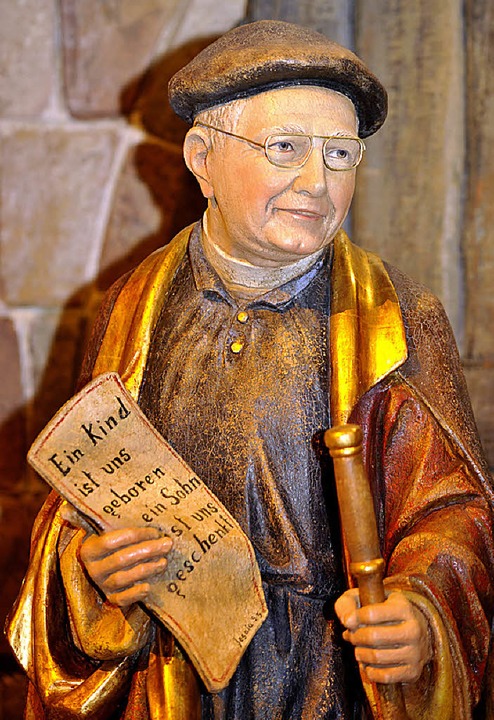 Ein Kind
ist uns
geboren
ein Sohn
ist uns
geschenkt!